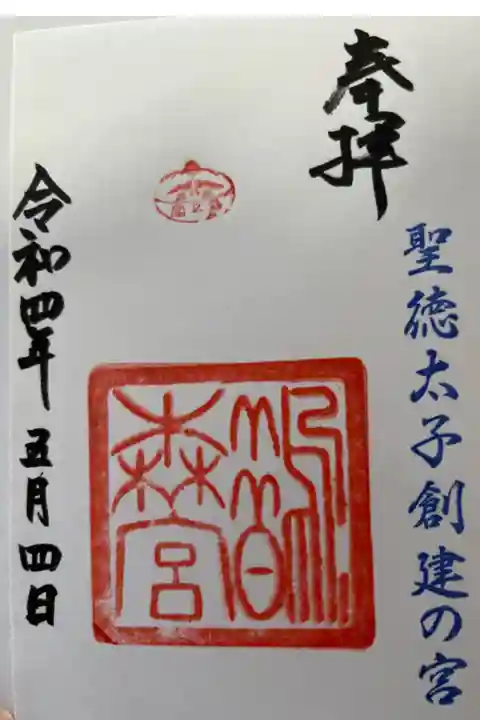 奉拝
聖徳太子創建の宮
鵲森宮
令和四年 五月四日